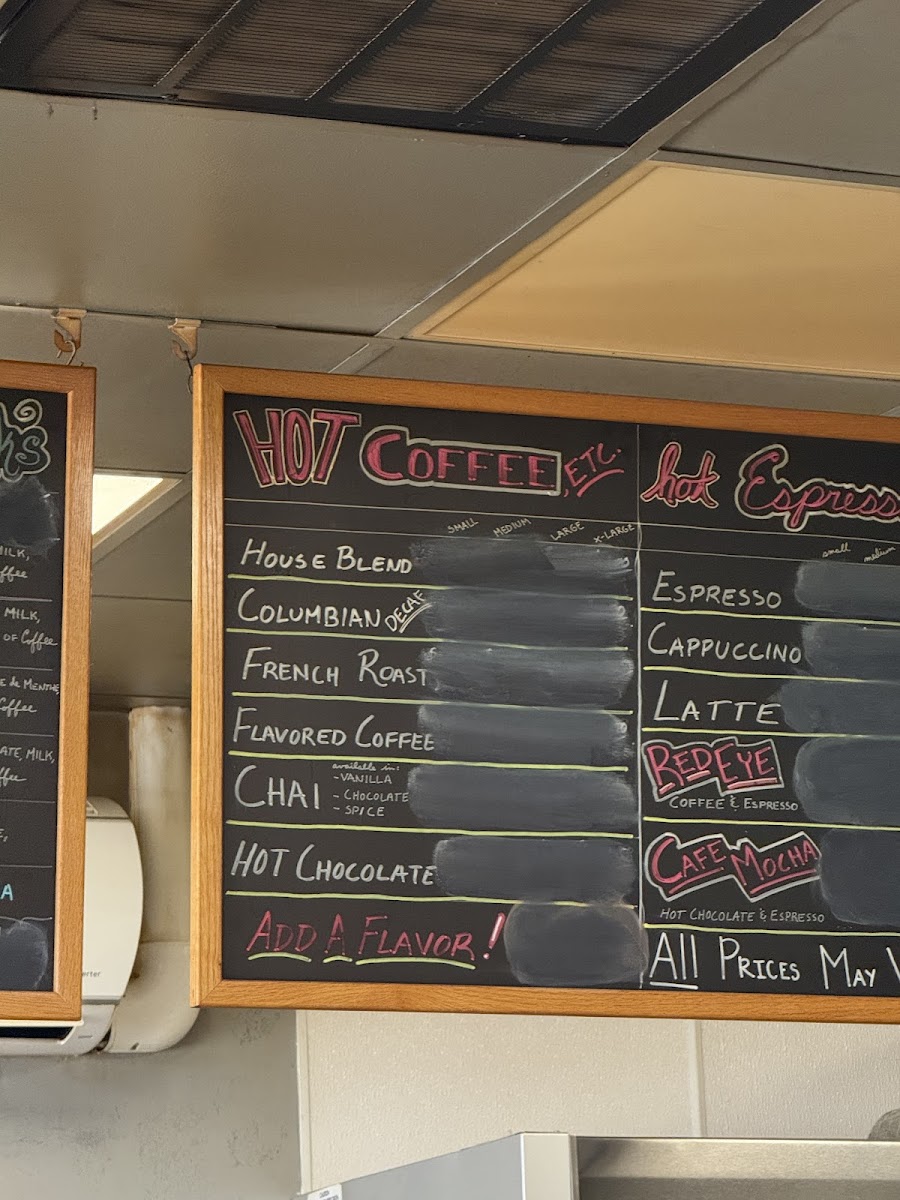 ks
MILK,
ffee
MILK,
OF Coffee
E de MENTHE
Coffee
ATE, MILK,
ffee
A
HOT COFFEE, ETC.
SMALL MEDIUM LARGE X-LARGE
HOUSE BLEND
COLUMBIAN DECAF
FRENCH ROAST
FLAVORED COFFEE
CHAI available in:
- VANILLA
- CHOCOLATE
- SPICE
HOT CHOCOLATE
ADD A FLAVOR!
hot Espress
small medium
ESPRESSO
CAPPUCCINO
LATTE
RED EYE
COFFEE & ESPRESSO
CAFE MOCHA
HOT CHOCOLATE & ESPRESSO
All PRICES MAY V
erter